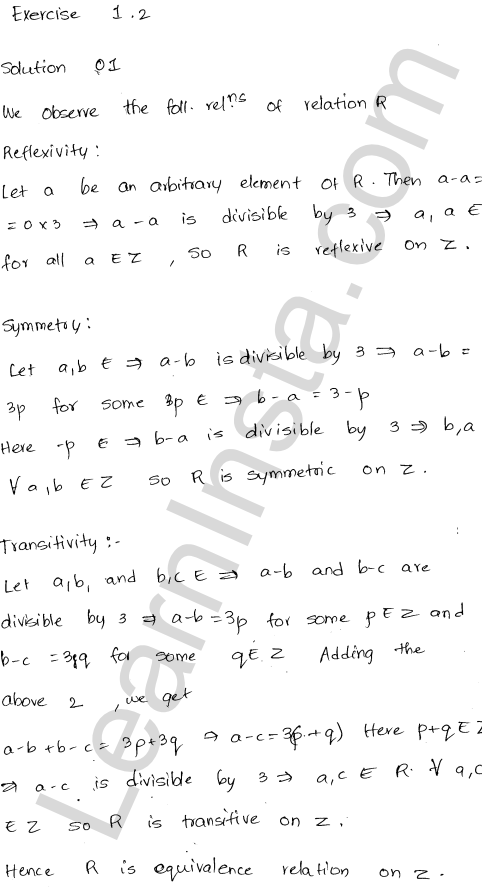 Exercise 1.2
Solution 01
We observe the foll. relns of relation R
Reflexivity:
Let a be an arbitrary element of R. Then a-a=
= 0 x 3 ⇒ a-a is divisible by 3 ⇒ a, a ∈
for all a ∈ Z, so R is reflexive on Z.
Symmetry:
Let a,b ∈ ⇒ a-b is divisible by 3 ⇒ a-b =
3p for some 3p ∈ ⇒ b-a = 3-p
Here -p ∈ ⇒ b-a is divisible by 3 ⇒ b,a
∀ a,b ∈ Z so R is symmetric on Z.
Transitivity:-
Let a,b, and b,c ∈ ⇒ a-b and b-c are
divisible by 3 ⇒ a-b=3p for some p ∈ Z and
b-c =3q for some q ∈ Z Adding the
above 2, we get
a-b+b-c= 3p+3q ⇒ a-c=3(p+q) Here p+q ∈ Z
⇒ a-c is divisible by 3 ⇒ a,c ∈ R. ∀ a,c
∈ Z so R is transitive on Z.
Hence R is equivalence relation on Z.
LearnInsta.com